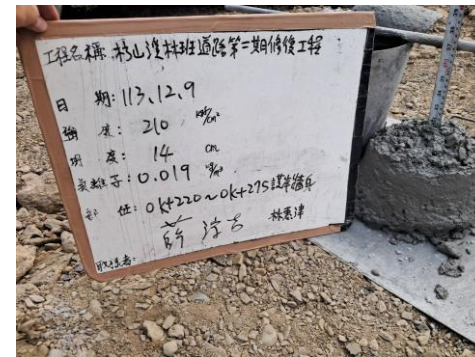 工程名稱:杉山濱林班道路第二期修復工程
日期:113.12.9
強度:210 kgf/cm²
坍度:14 cm
氯離子:0.019 kg/m³
部位:0k+220~0k+275護岸牆身
林惠津
取樣者: